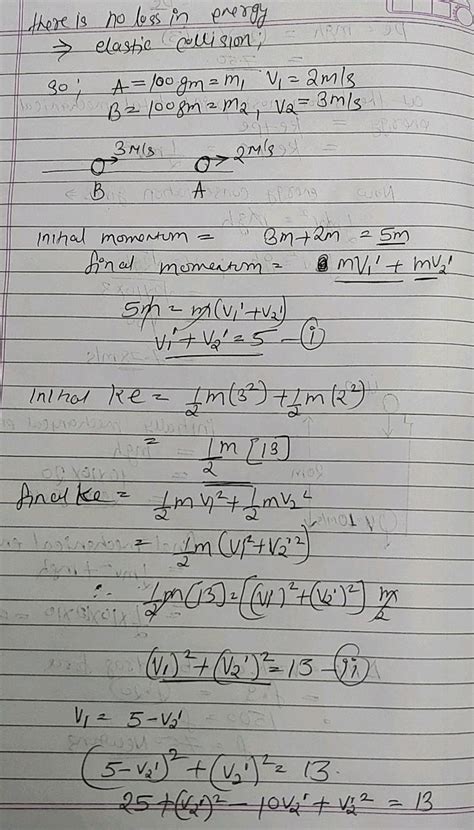 there is no loss in energy
⇒ elastic collision;
so; A = 100gm = m₁ V₁ = 2m/s
B = 100gm = m₂, V₂ = 3m/s
3m/s 2m/s
B A
Initial momentum = 3m+2m = 5m
final momentum = mV₁' + mV₂'
5m = m(V₁'+V₂')
V₁' + V₂' = 5 — (i)
Initial ke = 1/2 m(3²) + 1/2 m(2²)
= 1/2 m [13]
final ke = 1/2 m V₁² + 1/2 m V₂²
= 1/2 m (V₁² + V₂'²)
∴ 1/2 m(13) = [(V₁')² + (V₂')²] m/2
(V₁)² + (V₂')² = 13 — (ii)
V₁ = 5 - V₂'
(5-V₂')² + (V₂')² = 13.
25 + (V₂')² - 10V₂' + V₂'² = 13